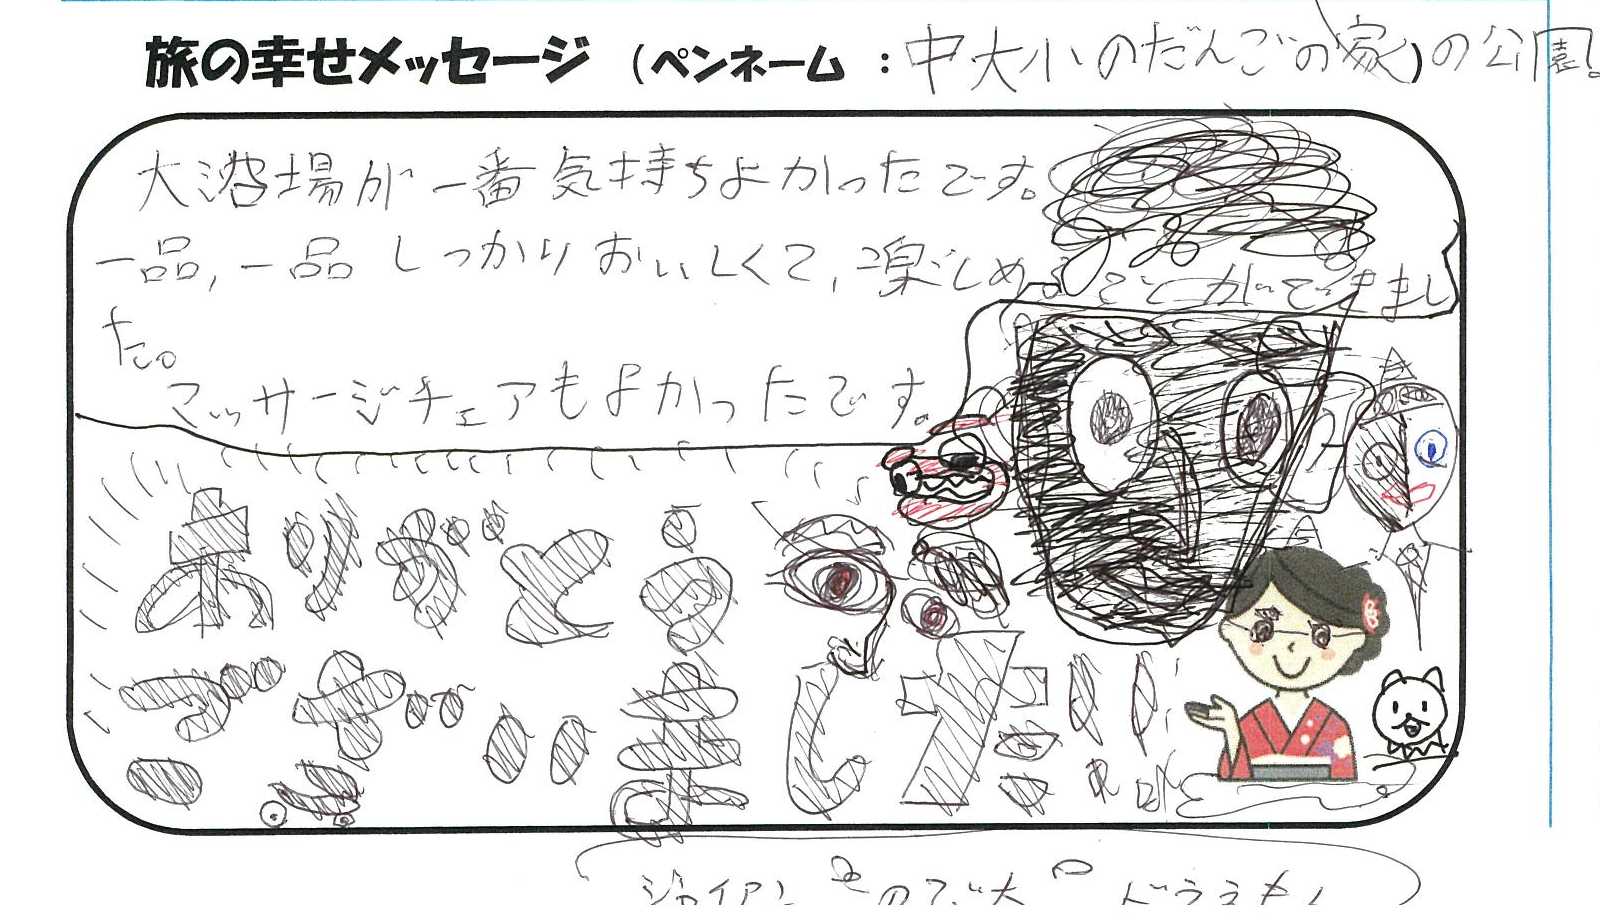 旅の幸せメッセージ (ペンネーム : 中大小のだんごの家)の公園。
大浴場が一番気持ちよかったです。
一品,一品しっかりおいしくて,楽しめることができまし
た。
マッサージチェアもよかったです。
ありがとう
ございました!!
ジャイアン のび太 ドラえもん